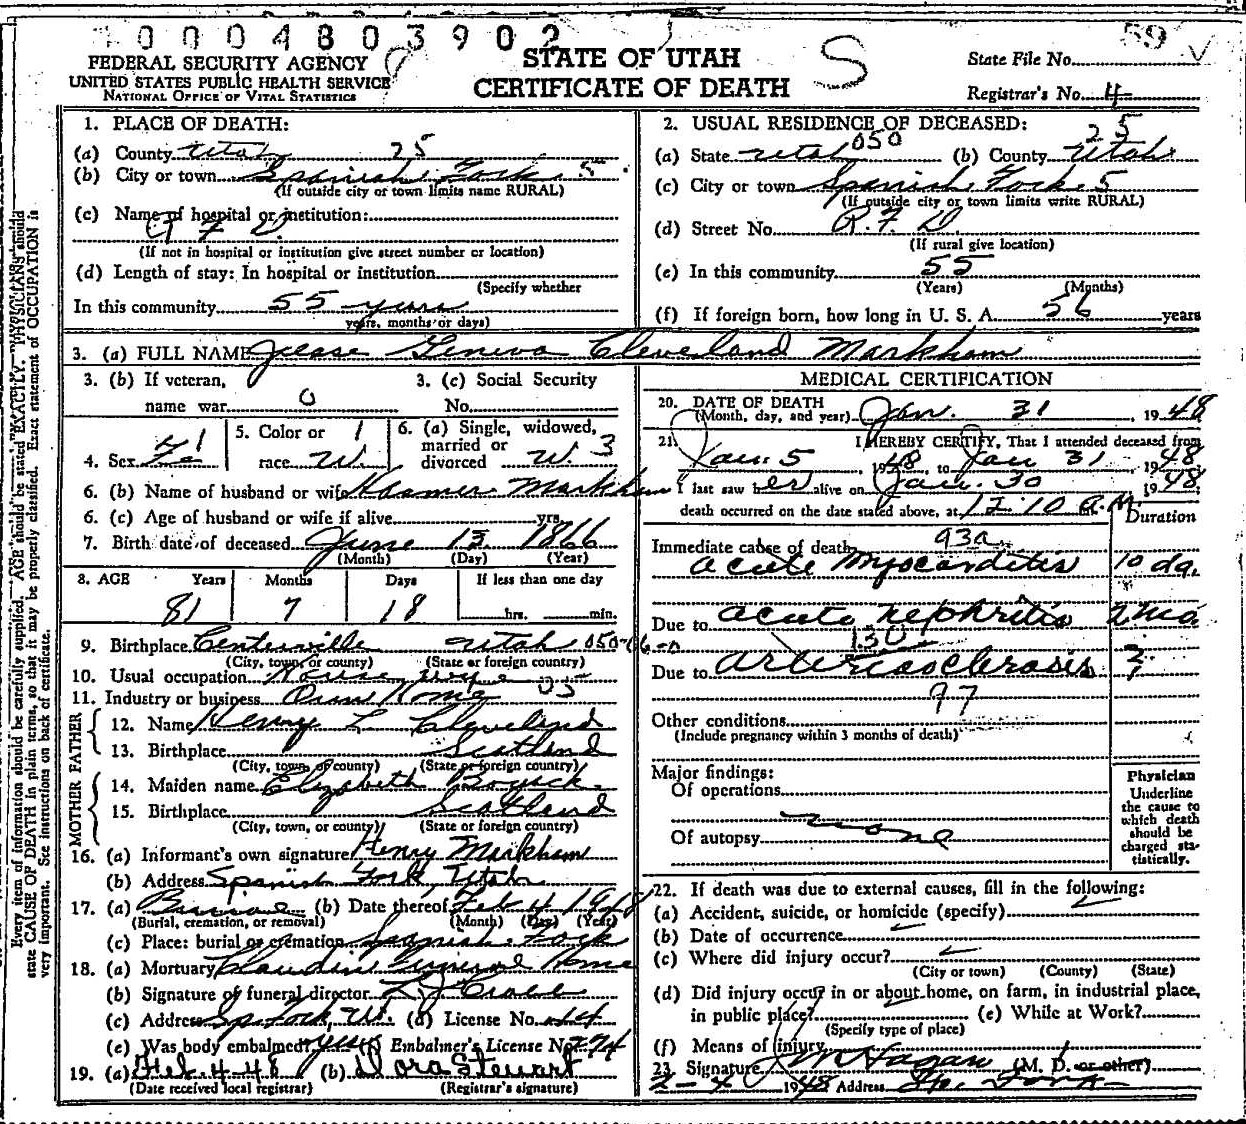 0004803902
59
FEDERAL SECURITY AGENCY
UNITED STATES PUBLIC HEALTH SERVICE
NATIONAL OFFICE OF VITAL STATISTICS
STATE OF UTAH
CERTIFICATE OF DEATH
S
State File No.
Registrar's No. 4
1. PLACE OF DEATH:
(a) County Utah 25
(b) City or town Spanish Fork 5
(If outside city or town limits name RURAL)
(c) Name of hospital or institution:
R F D
(If not in hospital or institution give street number or location)
(d) Length of stay: In hospital or institution
(Specify whether
In this community 55 years
years, months or days)
2. USUAL RESIDENCE OF DECEASED:
25
(a) State Utah 050 (b) County Utah
(c) City or town Spanish Fork 5
(If outside city or town limits write RURAL)
(d) Street No. R. F. D.
(If rural give location)
(e) In this community 55
(Years) (Months)
(f) If foreign born, how long in U. S. A. 56 years
3. (a) FULL NAME Geneva Cleveland Markham
3. (b) If veteran,
name war 0
3. (c) Social Security
No.
4. Sex Fe 1
5. Color or 1
race W.
6. (a) Single, widowed,
married or
divorced W. 3
6. (b) Name of husband or wife Markham
6. (c) Age of husband or wife if alive yrs.
7. Birth date of deceased June 13 1866
(Month) (Day) (Year)
8. AGE Years Months Days If less than one day
81 7 18 hrs. min.
9. Birthplace Centerville Utah 050-16-0
(City, town, or county) (State or foreign country)
10. Usual occupation House wife
11. Industry or business Own Home
FATHER
12. Name Henry L. Cleveland
13. Birthplace Scotland
(City, town, or county) (State or foreign country)
MOTHER
14. Maiden name Elizabeth
15. Birthplace Scotland
(City, town, or county) (State or foreign country)
16. (a) Informant's own signature Henry Markham
(b) Address Spanish Fork Utah
17. (a) Burial (b) Date thereof Feb 4 1948
(Burial, cremation, or removal) (Month) (Day) (Year)
(c) Place: burial or cremation Spanish Fork
18. (a) Mortuary Claudin Funeral Home
(b) Signature of funeral director
(c) Address Sp. Fork, Ut. (d) License No. 44
(e) Was body embalmed? yes (f) Embalmer's License No. 274
19. (a) Feb. 4-48 (b) Dora Stewart
(Date received local registrar) (Registrar's signature)
MEDICAL CERTIFICATION
20. DATE OF DEATH
(Month, day, and year) Jan. 31, 1948
21. I HEREBY CERTIFY, That I attended deceased from
Jan. 5, 1948, to Jan 31 1948
I last saw her alive on Jan. 30 1948
death occurred on the date stated above, at 12:10 a.M.
Duration
Immediate cause of death 93a
acute myocarditis 10 da.
Due to acute nephritis 2 mo
130
Due to arteriosclerosis ?
97
Other conditions
(Include pregnancy within 3 months of death)
Major findings:
Of operations
Of autopsy none
Physician
Underline
the cause to
which death
should be
charged sta-
tistically.
22. If death was due to external causes, fill in the following:
(a) Accident, suicide, or homicide (specify)
(b) Date of occurrence
(c) Where did injury occur?
(City or town) (County) (State)
(d) Did injury occur in or about home, on farm, in industrial place,
in public place? (e) While at Work?
(Specify type of place)
(f) Means of injury
23. Signature (M. D. or other)
2-4 1948 Address Sp. Fork
Every item of information should be carefully supplied. AGE should be stated EXACTLY. PHYSICIANS should
state CAUSE OF DEATH in plain terms, so that it may be properly classified. Exact statement of OCCUPATION is
very important. See instructions on back of certificate.